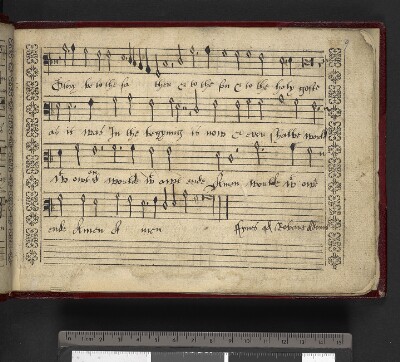 Glory be to the fa ther & to the son & to the holy goste
as it was In the begynnyng is now & ever shalbe world
wt owt end world wt owt ende Amen world wt owt
ende Amen A men Fynis qd Robert